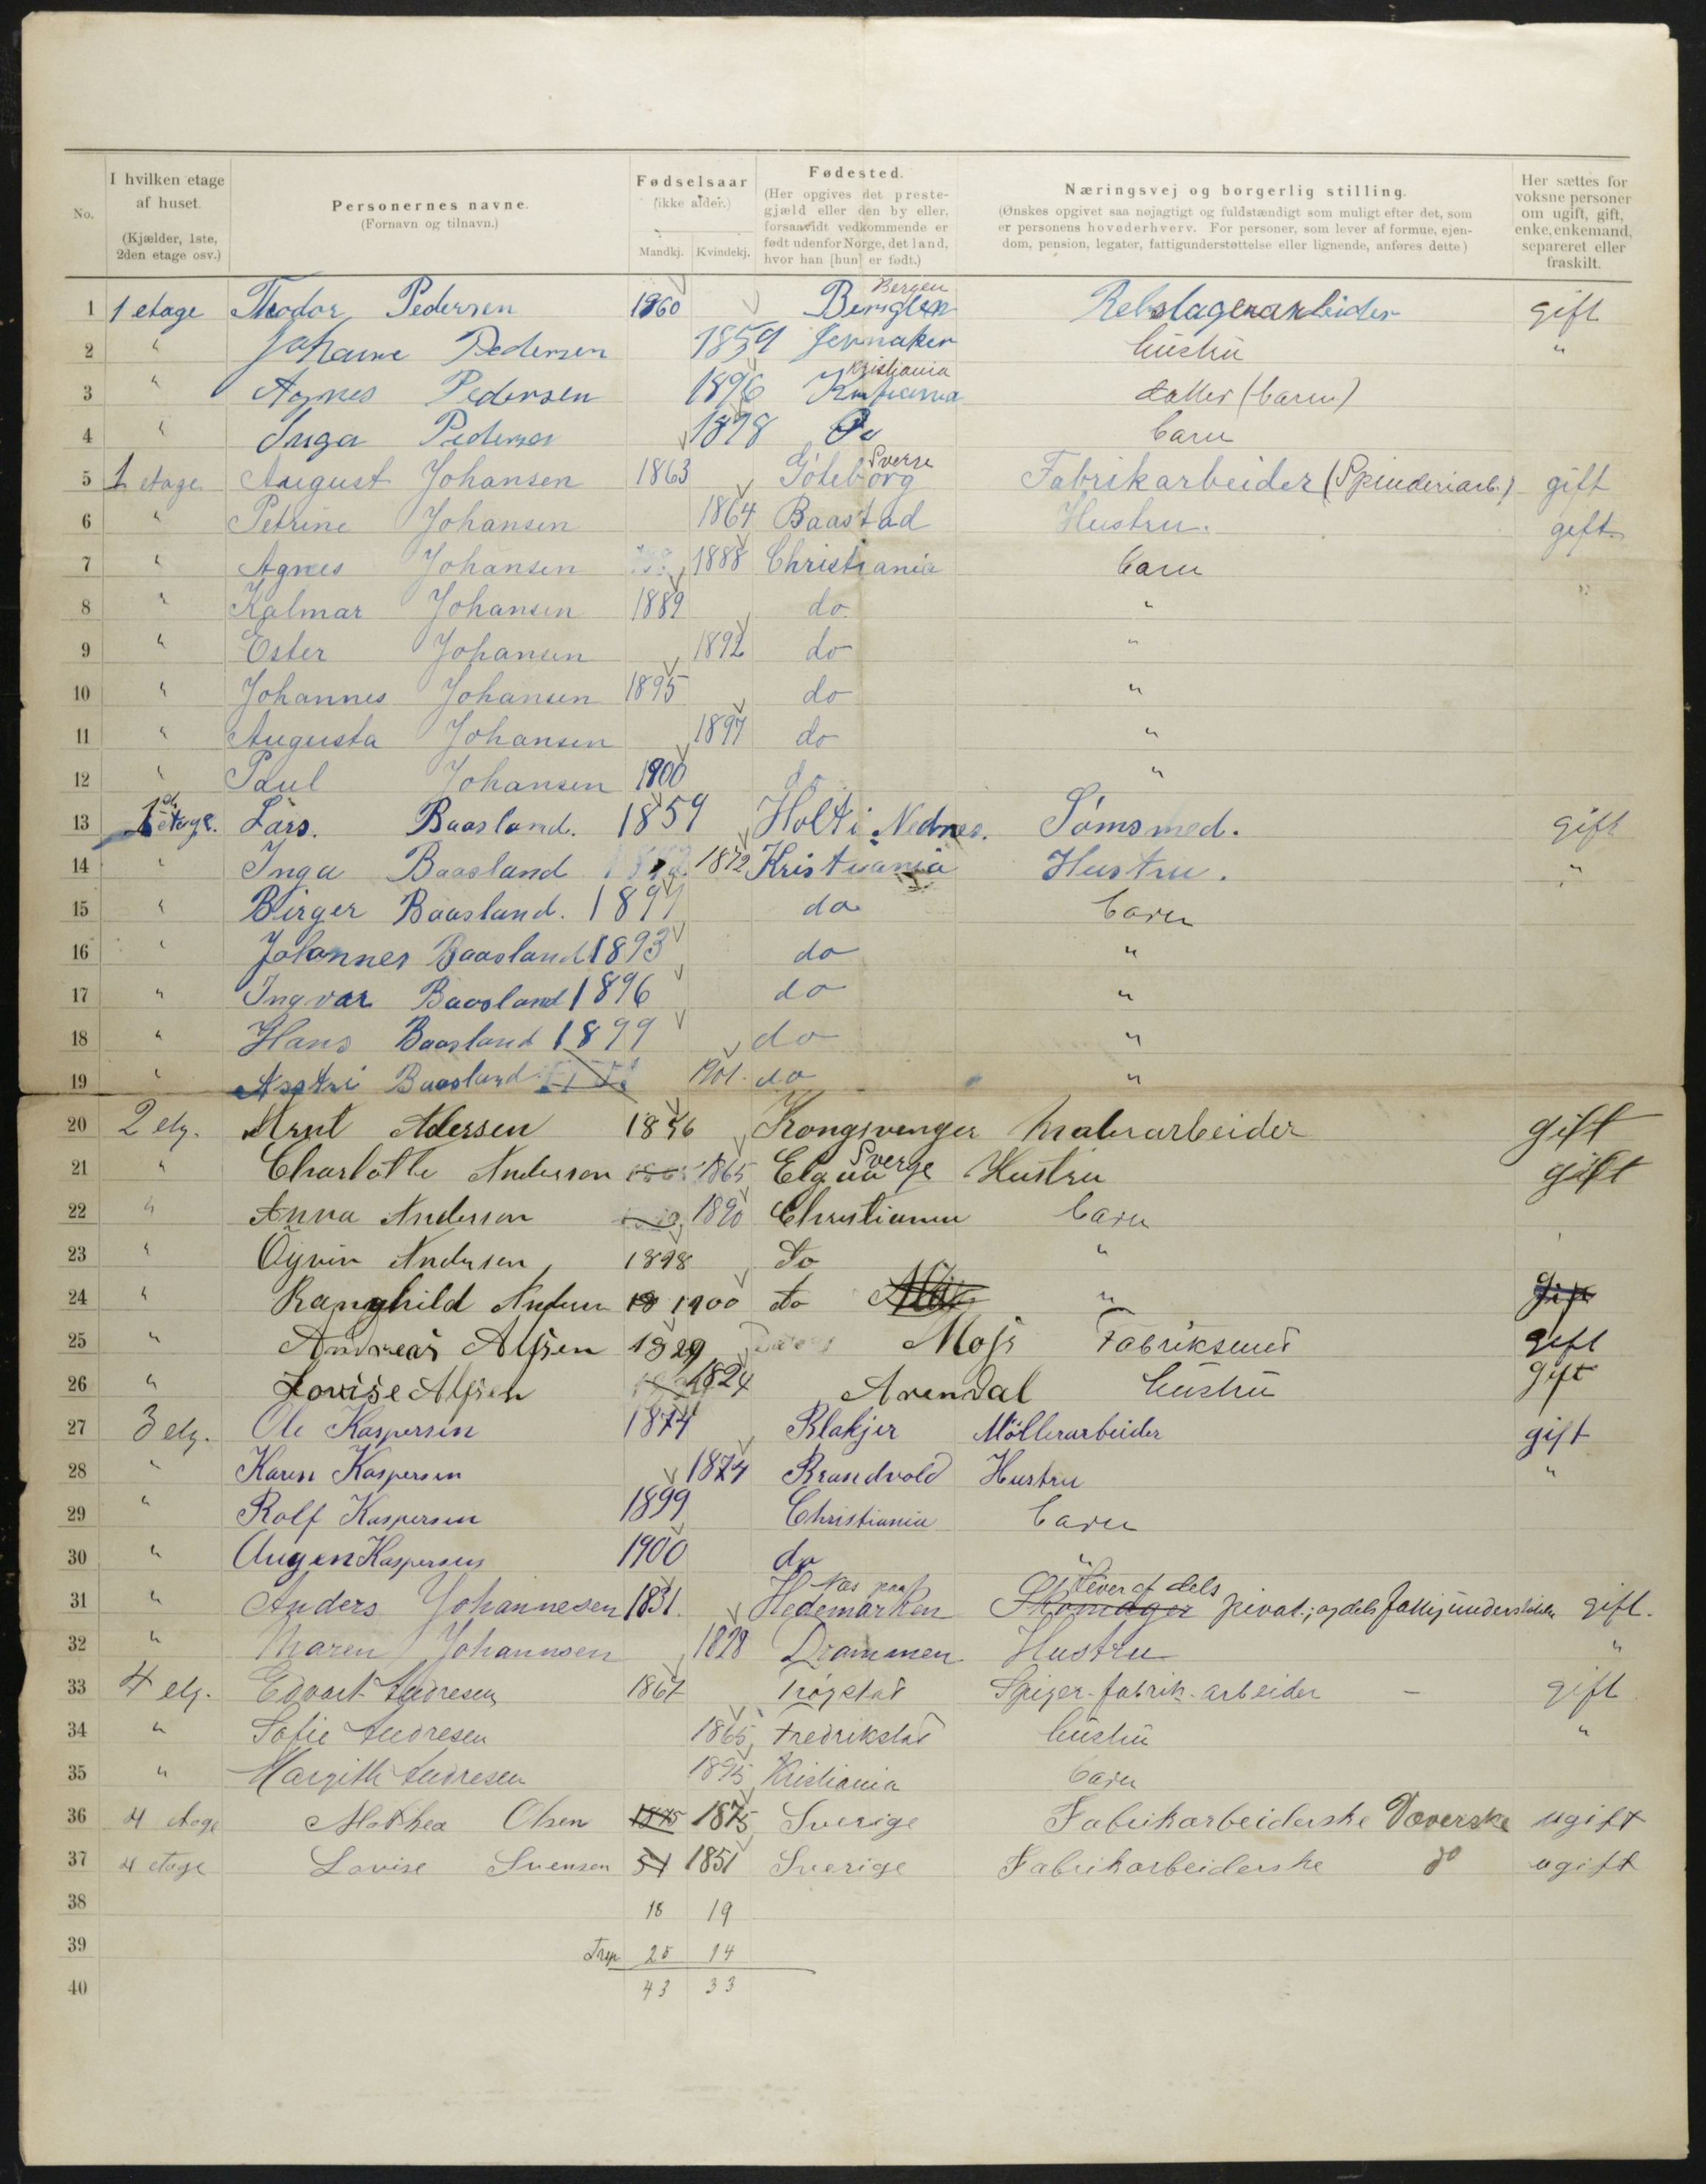 No.
I hvilken etage af huset.
(Kjælder, 1ste, 2den etage osv.)
Personernes navne.
(Fornavn og tilnavn.)
Fødselsaar
(ikke alder.)
Mandkj. Kvindekj.
Fødested.
(Her opgives det prestegjæld eller den by eller, forsaavidt vedkommende er født udenfor Norge, det land, hvor han [hun] er født.)
Næringsvej og borgerlig stilling.
(Ønskes opgivet saa nøjagtigt og fuldstændigt som muligt efter det, som er personens hovederhverv. For personer, som lever af formue, ejendom, pension, legater, fattigunderstøttelse eller lignende, anføres dette)
Her sættes for voksne personer om ugift, gift, enke, enkemand, separeret eller fraskilt.
1 1 etage Theodor Pedersen 1860 Bergen Rebslagerarbeider gift
2 " Johanne Pedersen 1859 Jevnaker hustru "
3 " Agnes Pedersen 1896 Kristiania datter (barn)
4 " Inga Pedersen 1898 Do barn
5 1 etage August Johansen 1863 Göteborg Sverge Fabrikarbeider (Spinderiarb.) gift
6 " Petrine Johansen 1864 Baastad Hustru. gift
7 " Agnes Johansen 1888 Christiania barn
8 " Kalmar Johansen 1889 do. "
9 " Ester Johansen 1892 do "
10 " Johannes Johansen 1895 do "
11 " Augusta Johansen 1897 do "
12 " Paul Johansen 1900 do "
13 1 etage. Lars. Baasland. 1859 Holt i Nednes. Sömsmed. gift
14 " Inga Baasland 1872 Kristiania Hustru. "
15 " Birger Baasland. 1891 do barn
16 " Johannes Baasland 1893 do "
17 " Ingvar Baasland 1896 do "
18 " Hans Baasland 1899 do "
19 " Baasland 1901. do "
20 2 etg. Arnt Adersen 1856 Kongsvenger Malerarbeider gift
21 " Charlotte Anderson 1865 Elgaa Sverge Hustru gift
22 " Anna Anderson 1890 Christiania barn
23 " Öyvin Andersen 1898 do "
24 " Ranghild Andersen 1900 do "
25 " Andreas Alfsen 1829 Moss Fabriksmed gift
26 " Lovise Alfsen 1824 Arendal hustru gift
27 3 etg. Ole Kaspersen 1874 Blakjer Möllerarbeider gift
28 " Karen Kaspersen 1874 Brandvold Hustru "
29 " Rolf Kaspersen 1899 Christiania barn
30 " Augen Kaspersen 1900 do "
31 " Anders Johannesen 1831. Næs paa Hedemarken Skomager Lever af dels privat; og dels fattigunderstöttelse gift.
32 " Maren Johannsen 1828 Drammen Hustru "
33 4 etg. Edvart Andresen 1867 Trögstad Spiger-fabrik-arbeider – gift
34 " Sofie Andresen 1865 Fredrikstad hustru "
35 " Margith Andresen 1895 Kristiania barn
36 4 etage Mathea Olsen 1875 1875 Sverige Fabrikarbeiderske Væverske ugift
37 4 etage Lovise Svensen 51 1851 Sverige Fabrikarbeiderske do ugift
38 18 19
39 Trsp 25 14
40 43 33